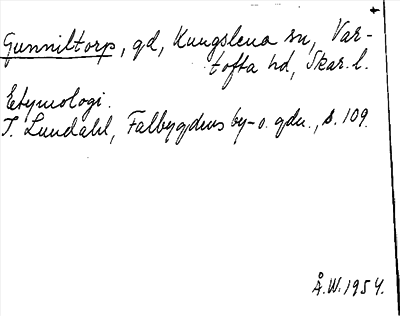 Gunniltorp, gd, Kungslena sn, Var-
tofta hd, Skar. l.
Etymologi.
I. Lundahl, Falbygdens by- o. gdn., s. 109.
Å.W. 1954.